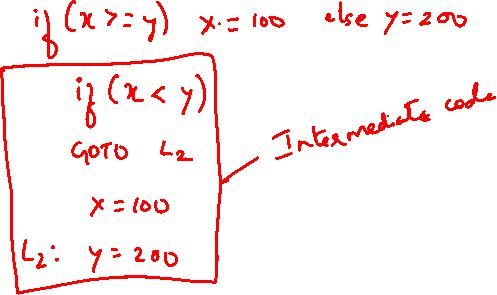 if (x >= y) x = 100 else y = 200
if (x < y)
GOTO L2
x = 100
L2: y = 200
Intermediate code